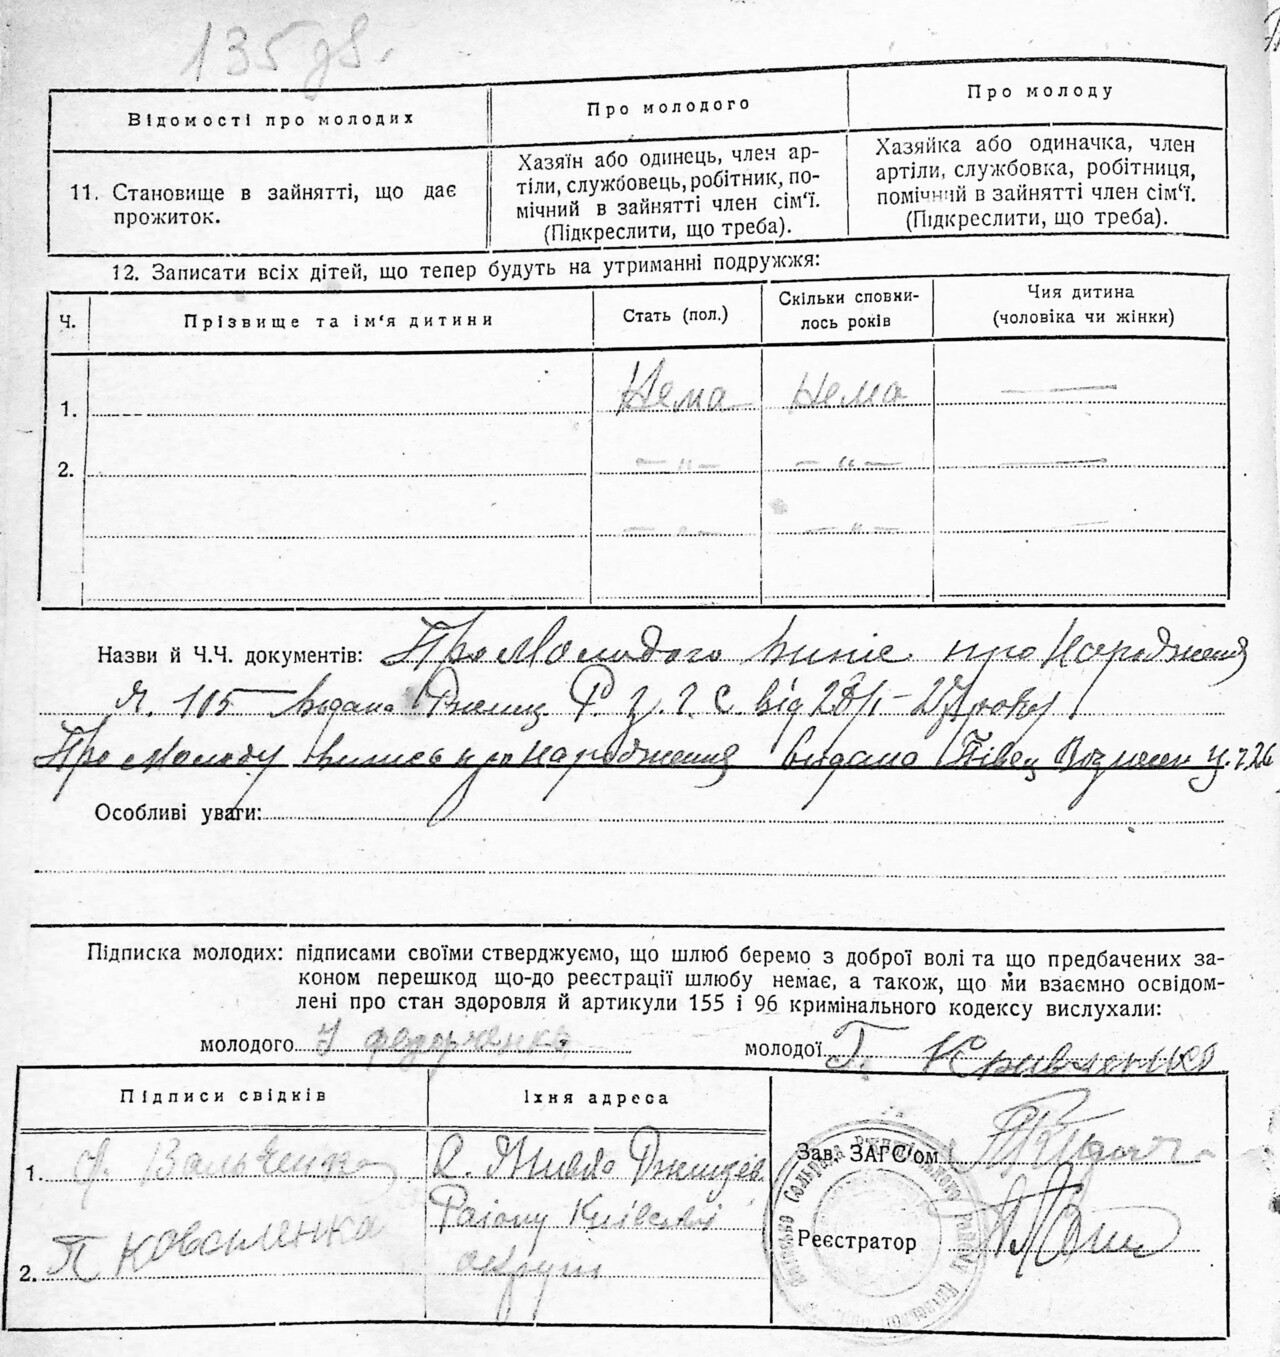 135 зв.
Відомості про молодих
Про молодого
Про молоду
11. Становище в зайнятті, що дає
прожиток.
Хазяїн або одинець, член ар-
тіли, службовець, робітник, по-
мічний в зайнятті член сім'ї.
(Підкреслити, що треба).
Хазяйка або одиначка, член
артіли, службовка, робітниця,
помічний в зайнятті член сім'ї.
(Підкреслити, що треба).
12. Записати всіх дітей, що тепер будуть на утриманні подружжя:
Ч.
Прізвище та ім'я дитини
Стать (пол.)
Скільки сповни-
лось років
Чия дитина
(чоловіка чи жінки)
1. Нема Нема —
2. — " — — " — —
— " — — " — —
Назви й Ч.Ч. документів: Про Молодого випис про Народження
105 видана Р. З. Г. С. від
Про Молоду випись про народження видана
Особливі уваги:
Підписка молодих: підписами своїми стверджуємо, що шлюб беремо з доброї волі та що предбачених за-
коном перешкод що-до реєстрації шлюбу немає, а також, що ми взаємно освідом-
лені про стан здоровля й артикули 155 і 96 кримінального кодексу вислухали:
молодого Федорченко молодої Г. Кривленко
Підписи свідків
Їхня адреса
1. Вальченко
с.
Району Київської
округи
2. П Коваленко
Зав. ЗАГС'ом
Реєстратор